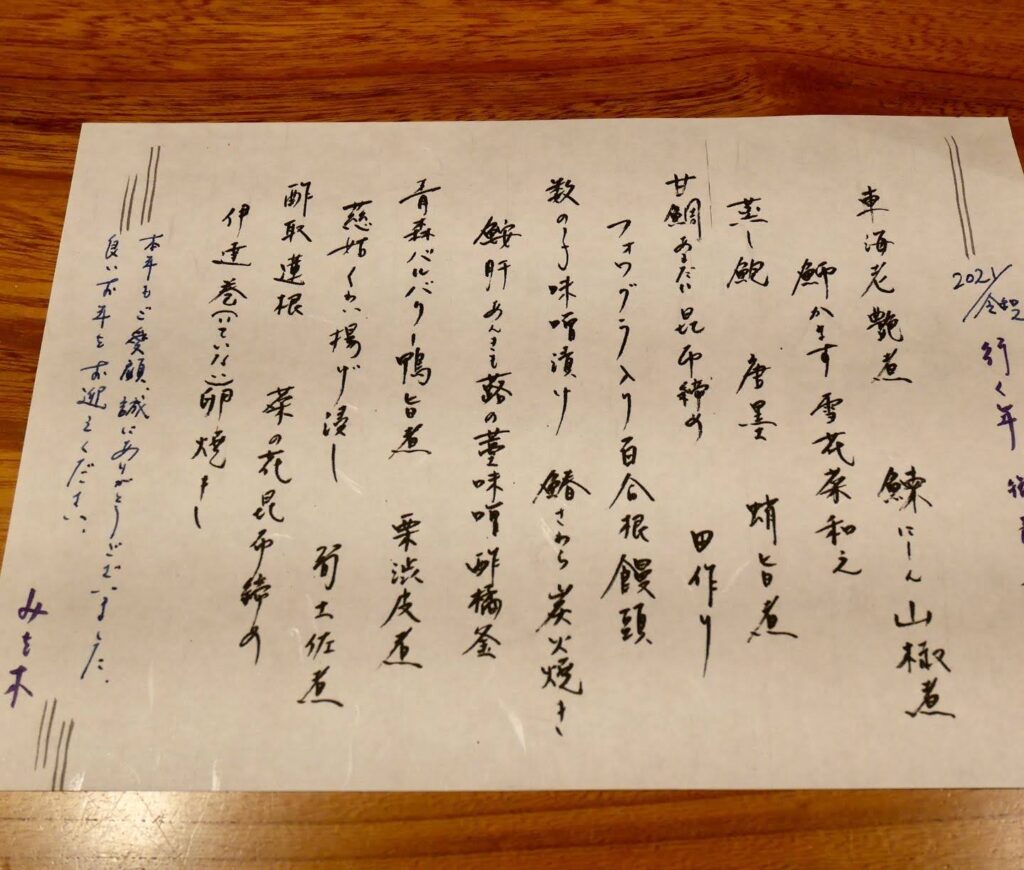 2021/令和3
行く年
車海老艶煮　鰊にしん山椒煮
魳かます雪花菜和え
蒸し鮑　唐墨　蛸旨煮
甘鯛あまだい昆布締め　田作り
フォワグラ入り百合根饅頭
数の子味噌漬け　鰆さわら炭火焼き
鮟肝あんきも蕗の薹味噌酢橘釜
青森バルバリー鴨旨煮　栗渋皮煮
慈姑くわい揚げ浸し　筍土佐煮
酢取蓮根　菜の花昆布締め
伊達巻(いていない)卵焼き
本年もご愛顧、誠にありがとうございました。
良いお年をお迎えください。
みを木